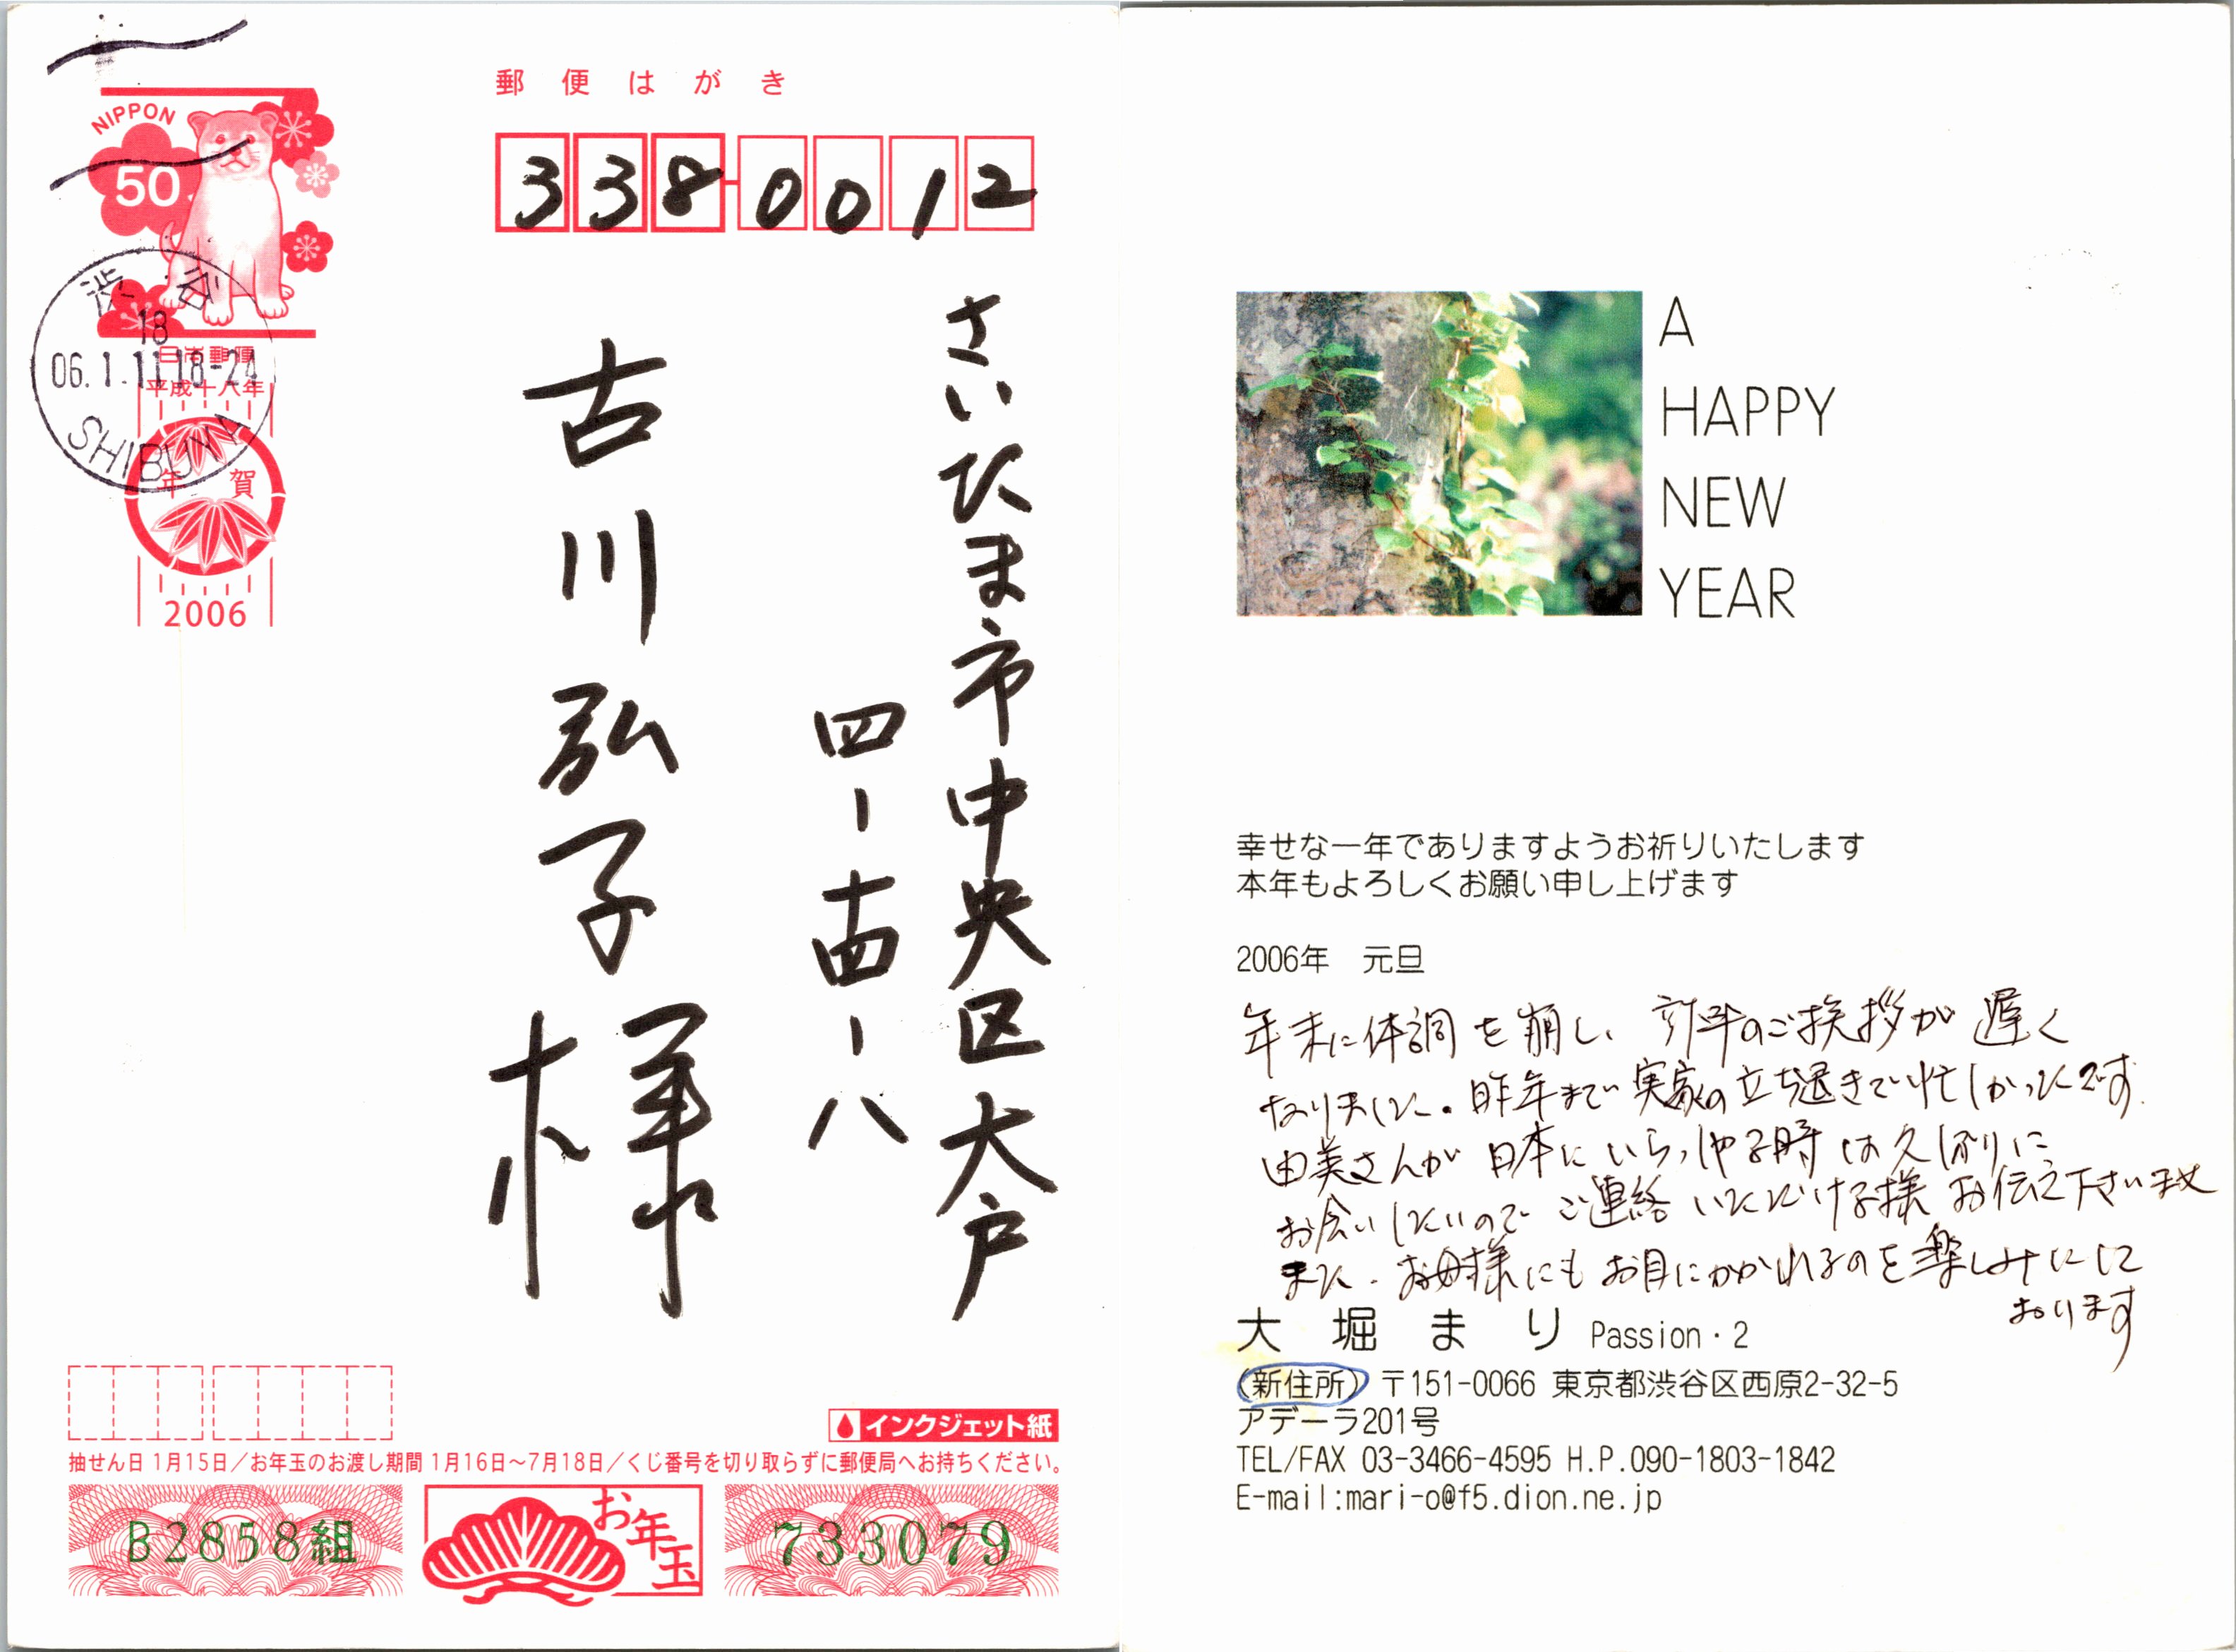 郵便はがき
NIPPON
50
日本郵便
平成十八年
年賀
2006
渋谷
18
06.1.11 18-24
SHIBUYA
338-0012
さいたま市中央区大戸
四-十四-八
古川弘子様
インクジェット紙
抽せん日 1月15日／お年玉のお渡し期間 1月16日～7月18日／くじ番号を切り取らずに郵便局へお持ちください。
B2858組
お年玉
733079
A
HAPPY
NEW
YEAR
幸せな一年でありますようお祈りいたします
本年もよろしくお願い申し上げます
2006年 元旦
年末に体調を崩し、新年のご挨拶が遅く
なりました。昨年まで実家の立ち退きで忙しかったです.
由美さんが日本にいらっしゃる時は久しぶりに
お会いしたいのでご連絡いただける様お伝え下さいませ
また、お母様にもお目にかかれるのを楽しみにして
おります
大堀まり Passion・2
(新住所) 〒151-0066 東京都渋谷区西原2-32-5
アデーラ201号
TEL/FAX 03-3466-4595 H.P.090-1803-1842
E-mail:mari-o@f5.dion.ne.jp